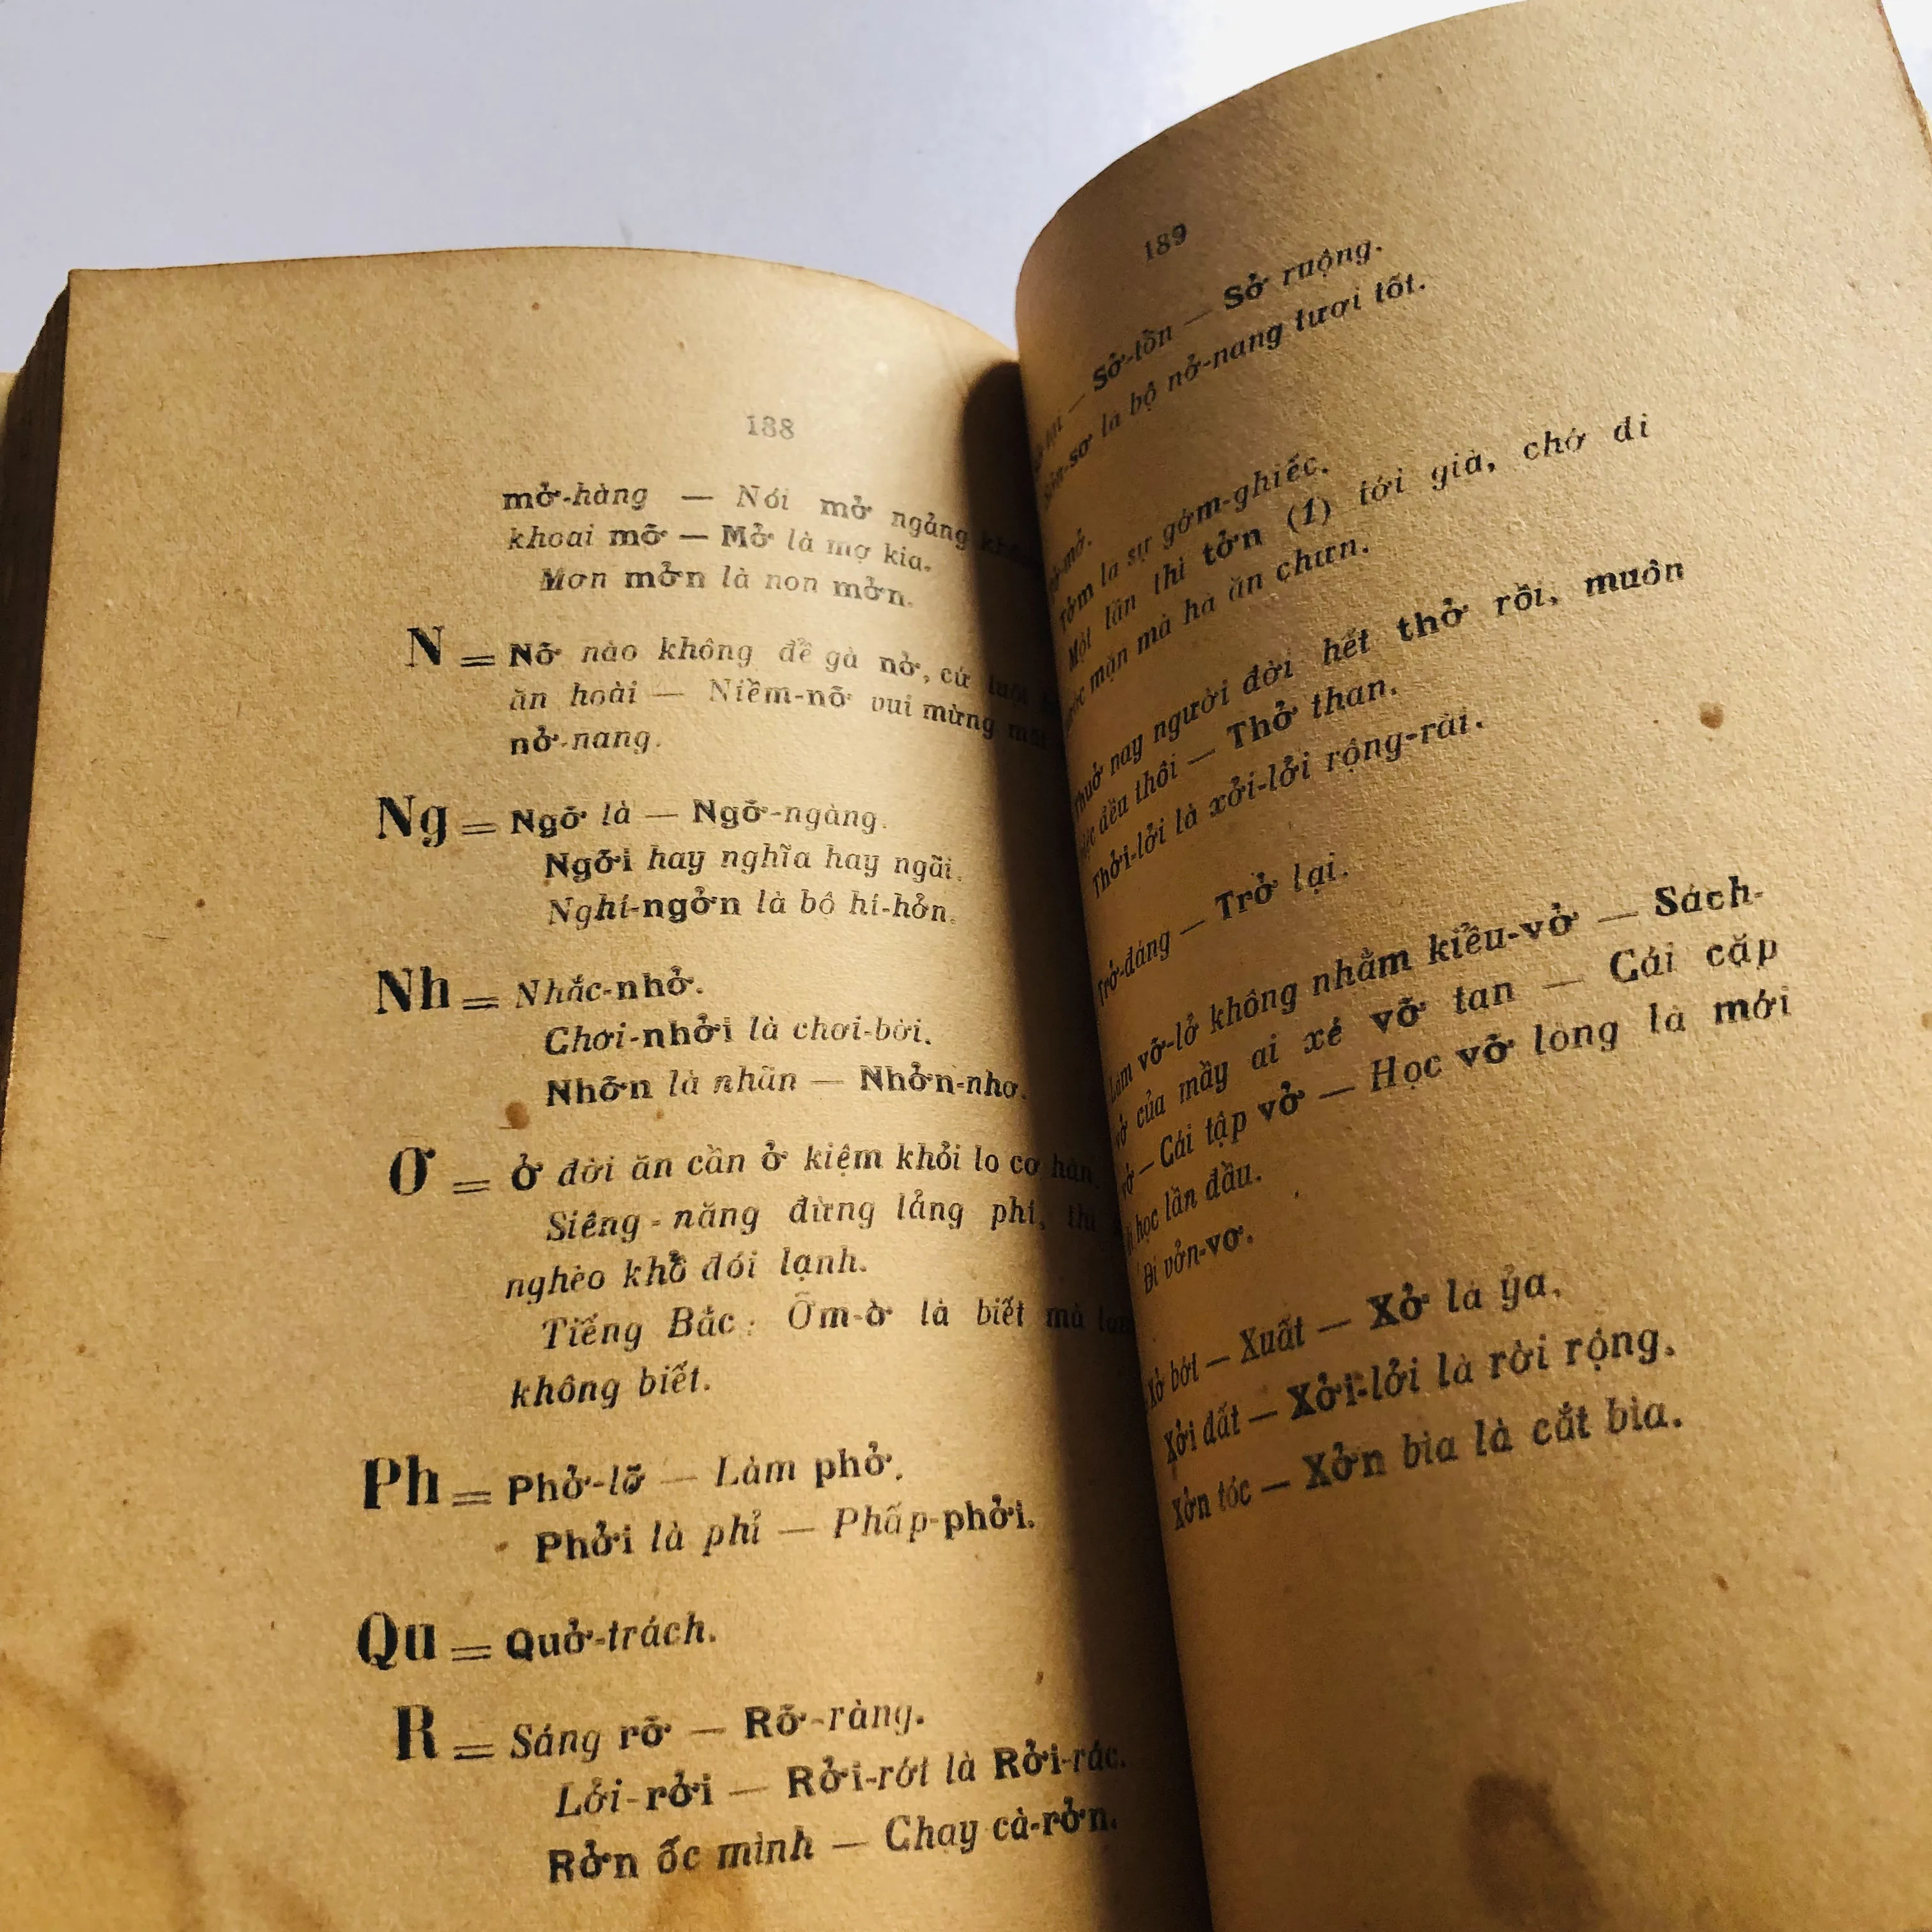 188
mở-hàng — Nói mở ngảng
khoai mỡ — Mở là mợ kia.
Mơn mởn là non mởn.
N = Nỡ nào không để gà nở, cứ luột
ăn hoài — Niềm-nỡ vui mừng mặt
nở-nang.
Ng = Ngỡ là — Ngỡ-ngàng.
Ngỡi hay nghĩa hay ngãi.
Nghí-ngởn là bộ hí-hởn.
Nh = Nhắc-nhở.
Chơi-nhởi là chơi-bời.
Nhỡn là nhãn — Nhởn-nhơ.
Ơ = Ở đời ăn cần ở kiệm khỏi lo cơ hàn.
Siêng-năng đừng lảng phí, thì
nghèo khổ đói lạnh.
Tiếng Bắc: Ỡm-ờ là biết mà làm
không biết.
Ph = Phở-lỡ — Làm phở.
Phởi là phỉ — Phấp-phởi.
Qu = Quở-trách.
R = Sáng rỡ — Rỡ-ràng.
Lởi-rởi — Rởi-rớt là Rởi-rác.
Rởn ốc mình — Chạy cà-rởn.
189
— Sở-tồn — Sở ruộng.
là bộ nở-nang tươi tốt.
là sự gớm-ghiếc.
Một lần thì tởn (1) tới già, chớ đi
mặn mà hà ăn chưn.
Thuở nay người đời hết thở rồi, muôn
đều thôi — Thở than.
Thởi-lởi là xởi-lởi rộng-rải.
Trở-đáng — Trở lại.
Làm vỡ-lở không nhằm kiểu-vở — Sách-
vở của mầy ai xé vỡ tan — Cái cặp
vở — Cái tập vở — Học vỡ lòng là mới
đi học lần đầu.
Đi vởn-vơ.
Xở bớt — Xuất — Xở là ỷa.
Xởi đất — Xởi-lởi là rời rộng.
Xởn tóc — Xởn bìa là cắt bìa.